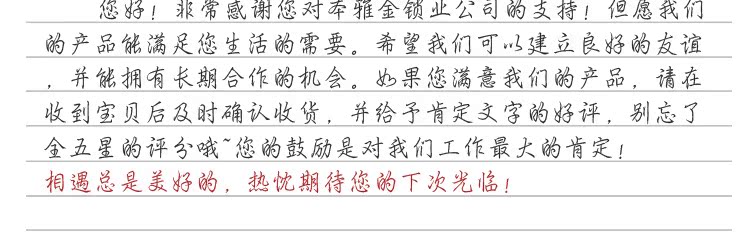 您好！非常感谢您对本雅金锁业公司的支持！但愿我们
的产品能满足您生活的需要。希望我们可以建立良好的友谊
，并能拥有长期合作的机会。如果您满意我们的产品，请在
收到宝贝后及时确认收货，并给予肯定文字的好评，别忘了
全五星的评分哦~您的鼓励是对我们工作最大的肯定！
相遇总是美好的，热忱期待您的下次光临！